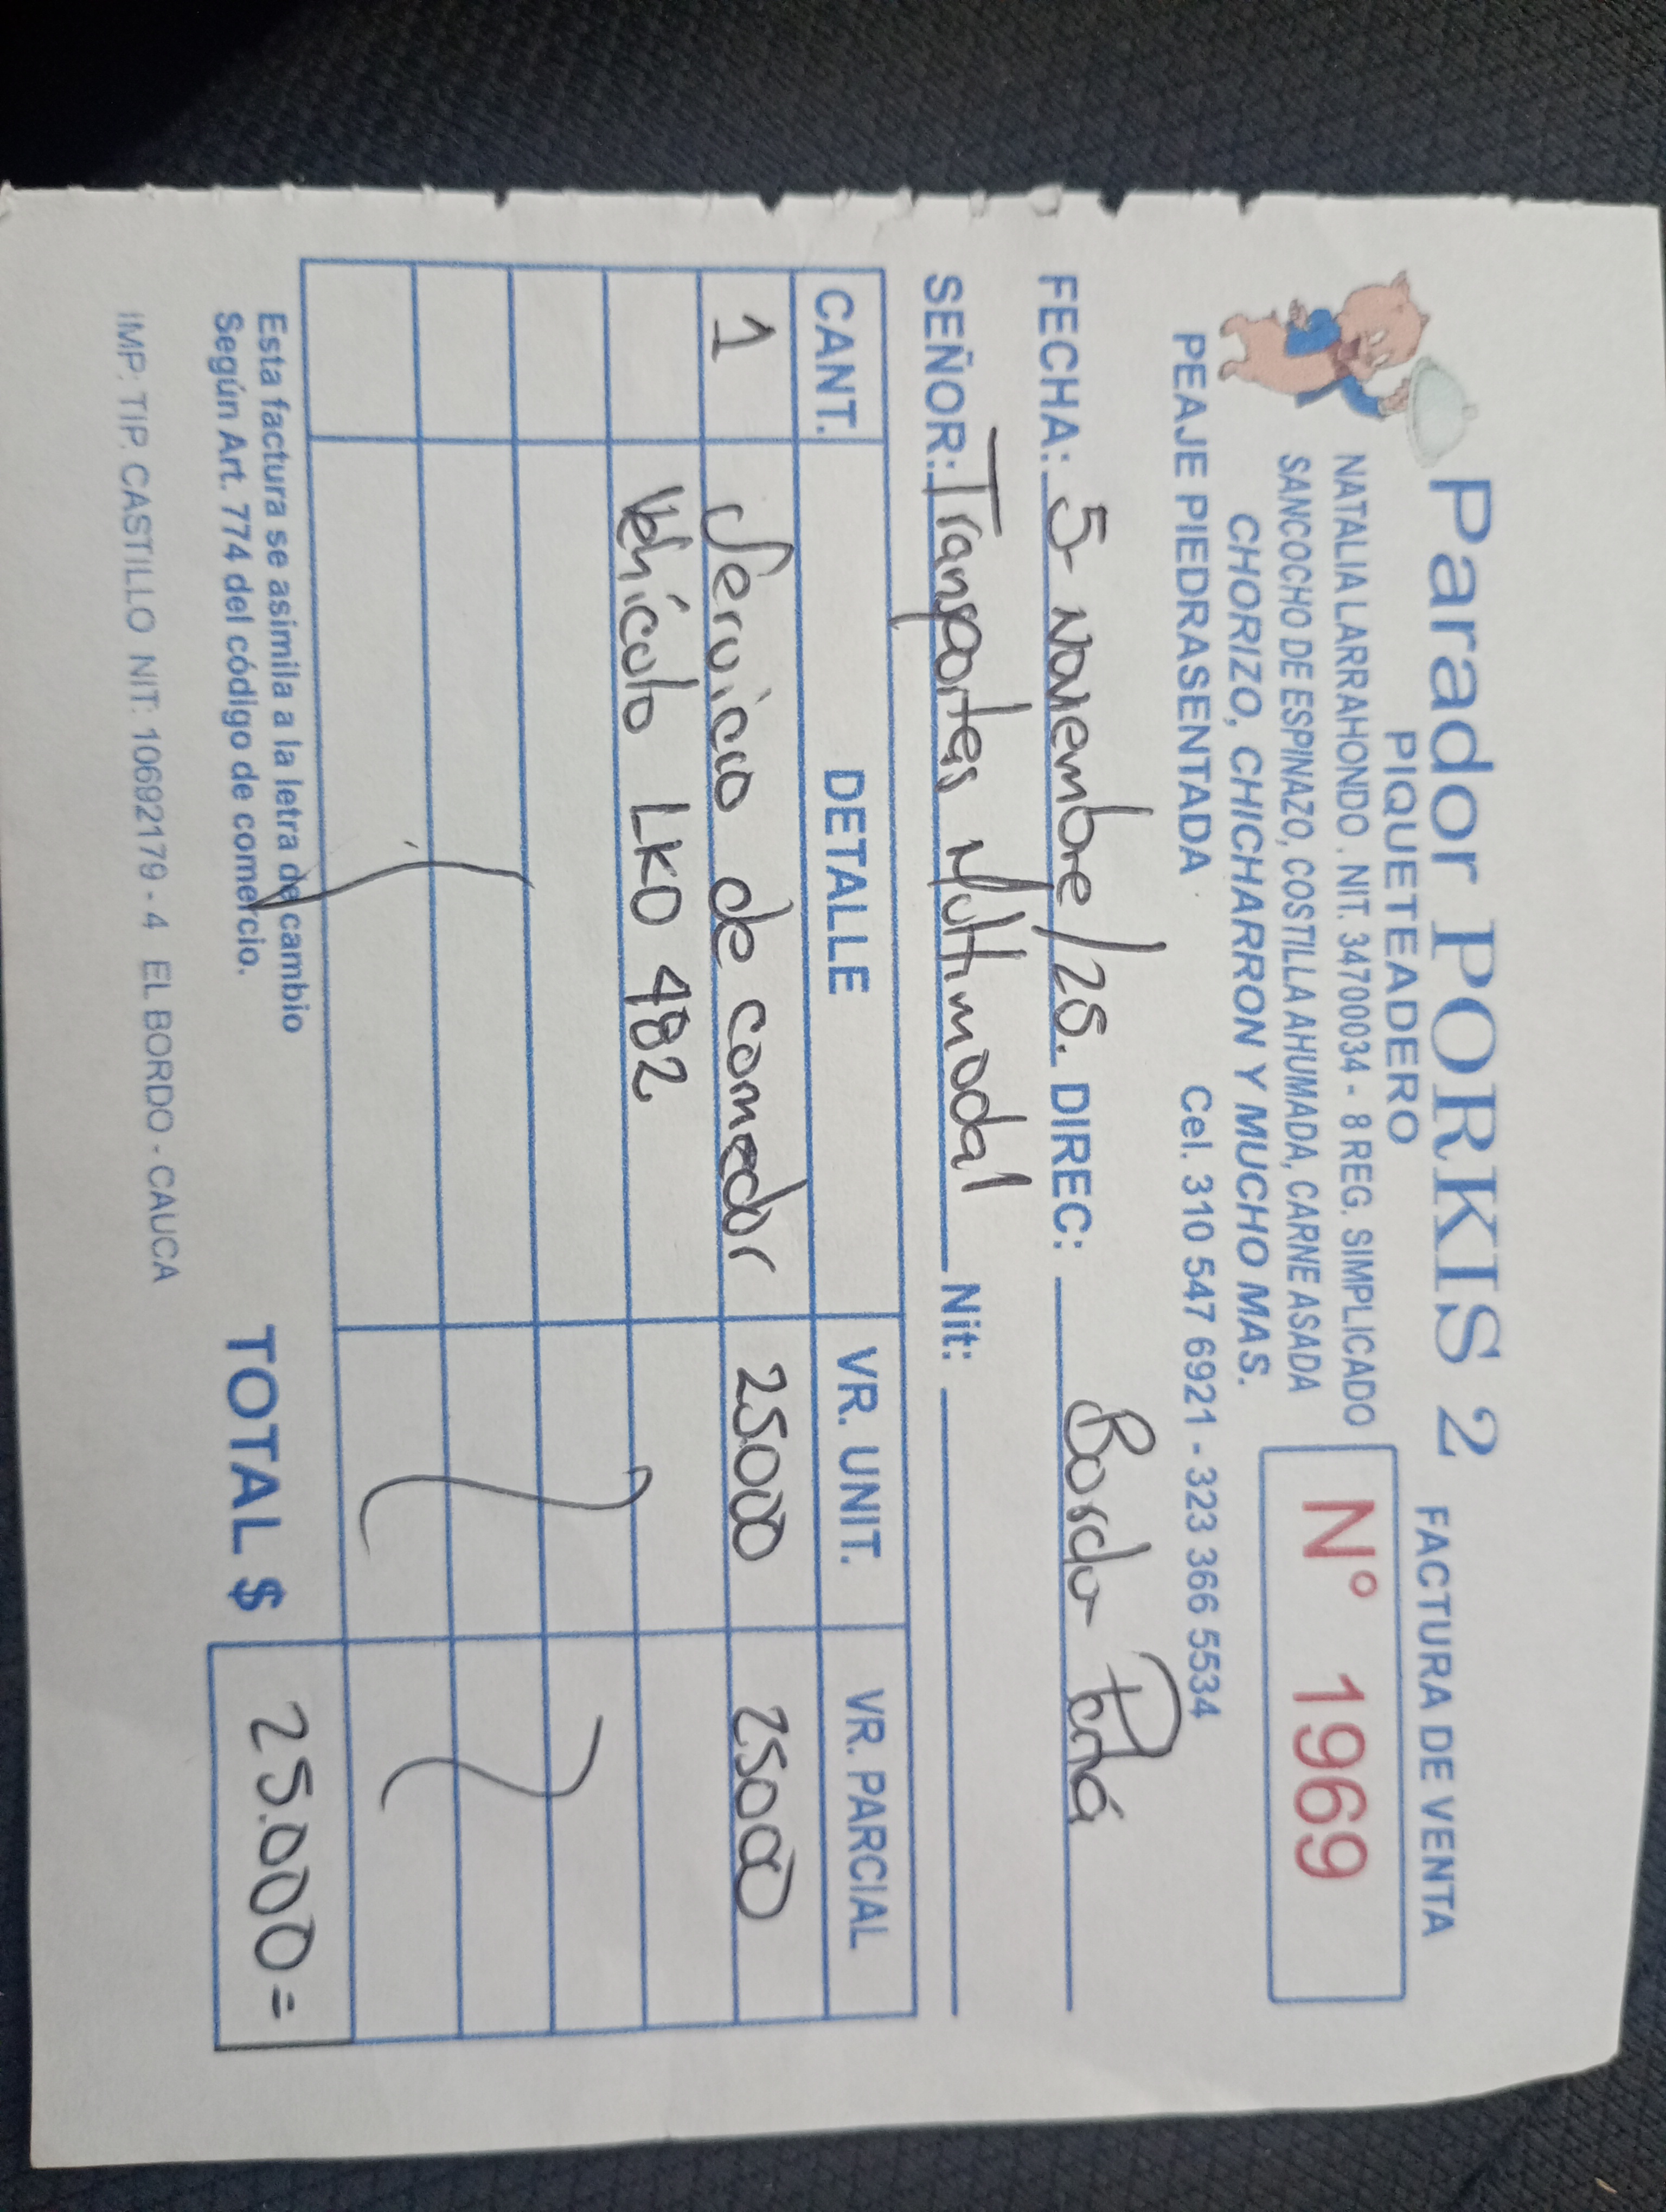 Parador PORKIS 2
PIQUETEADERO
FACTURA DE VENTA
NATALIA LARRAHONDO . NIT. 34700034 - 8 REG. SIMPLICADO
SANCOCHO DE ESPINAZO, COSTILLA AHUMADA, CARNE ASADA
CHORIZO, CHICHARRON Y MUCHO MAS.
N° 1969
PEAJE PIEDRASENTADA Cel. 310 547 6921 - 323 366 5534
FECHA: 5- Noviembre/25. DIREC: Bordo
SEÑOR: Transportes Multimodal Nit:
CANT. DETALLE VR. UNIT. VR. PARCIAL
1 Servicio de comedor 25000 25000
Vehículo LKO 482
Esta factura se asimila a la letra de cambio
Según Art. 774 del código de comercio.
TOTAL $ 25.000=
IMP: TIP. CASTILLO NIT: 10692179 - 4 EL BORDO - CAUCA